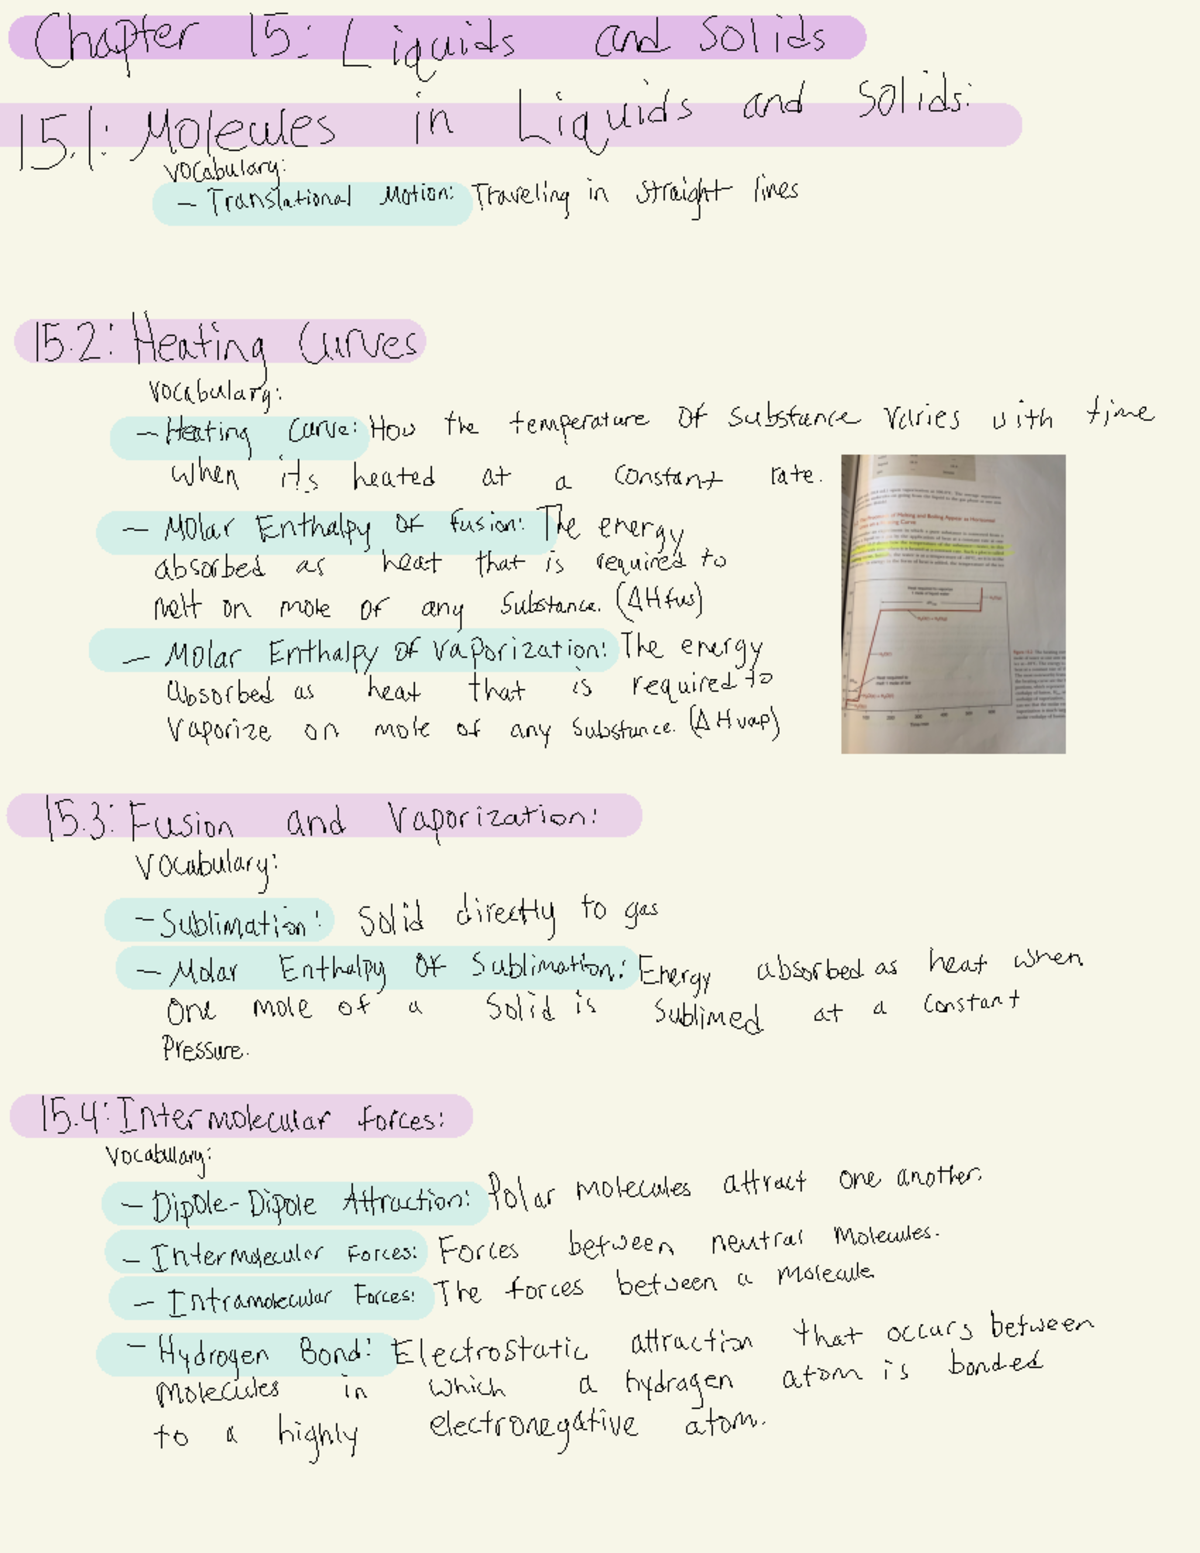 Chapter 15: Liquids and Solids
15.1: Molecules in Liquids and Solids:
Vocabulary:
- Translational Motion: Traveling in straight lines
15.2: Heating Curves
Vocabulary:
- Heating Curve: How the temperature of substance varies with time
when it's heated at a constant rate.
- Molar Enthalpy of fusion: The energy
absorbed as heat that is required to
melt on mole of any substance. (ΔHfus)
- Molar Enthalpy of vaporization: The energy
absorbed as heat that is required to
vaporize on mole of any substance. (ΔHvap)
15.3: Fusion and Vaporization:
Vocabulary:
- Sublimation: Solid directly to gas
- Molar Enthalpy of Sublimation: Energy absorbed as heat when
one mole of a solid is sublimed at a constant
pressure.
15.4: Intermolecular forces:
Vocabulary:
- Dipole-Dipole Attraction: Polar molecules attract one another.
- Intermolecular Forces: Forces between neutral molecules.
- Intramolecular Forces: The forces between a molecule.
- Hydrogen Bond: Electrostatic attraction that occurs between
molecules in which a hydrogen atom is bonded
to a highly electronegative atom.